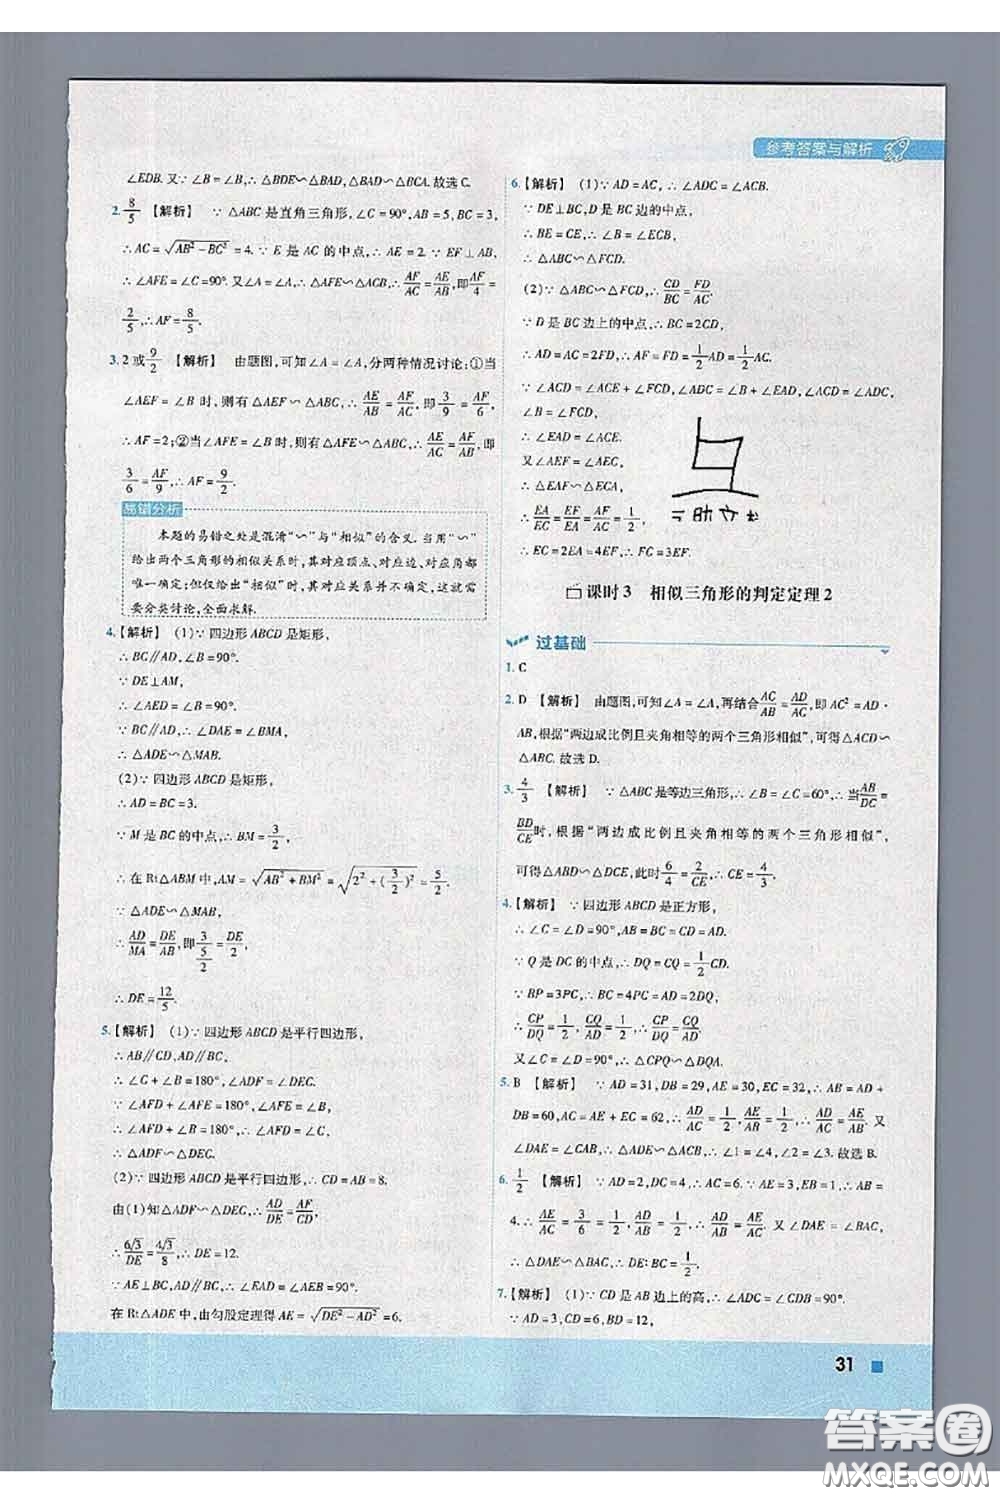 参考答案与解析
∠EDB. 又∵∠B=∠B,∴△BDE∽△BAD,△BAD∽△BCA. 故选 C.
2. 8/5 【解析】 ∵△ABC 是直角三角形,∠C=90°,AB=5,BC=3,
∴AC=√(AB²-BC²)=4. ∵E 是 AC 的中点,∴AE=2. ∵EF⊥AB,
∴∠AFE=∠C=90°. 又∠A=∠A,∴△AFE∽△ACB,∴AF/AC=AE/AB,即AF/4=
2/5,∴AF=8/5.
3. 2或9/2 【解析】 由题图,可知∠A=∠A,分两种情况讨论:①当
∠AEF=∠B 时,则有△AEF∽△ABC,∴AE/AB=AF/AC,即3/9=AF/6,
∴AF=2;②当∠AFE=∠B时,则有△AFE∽△ABC,∴AE/AC=AF/AB,即
3/6=AF/9,∴AF=9/2.
易错分析
本题的易错之处是混淆“∽”与“相似”的含义. 当用“∽”
给出两个三角形的相似关系时,其对应顶点、对应边、对应角都
唯一确定;但仅给出“相似”时,其对应关系并不确定,此时需
要分类讨论,全面求解.
4.【解析】 (1)∵四边形 ABCD 是矩形,
∴BC∥AD,∠B=90°.
∵DE⊥AM,
∴∠AED=∠B=90°.
∵BC∥AD,∴∠DAE=∠BMA,
∴△ADE∽△MAB.
(2)∵四边形 ABCD 是矩形,
∴AD=BC=3.
∵M 是 BC 的中点,∴BM=3/2,
∴在 Rt△ABM 中,AM=√(AB²+BM²)=√(2²+(3/2)²)=5/2.
∵△ADE∽△MAB,
∴AD/MA=DE/AB,即3/(5/2)=DE/2,
∴DE=12/5.
5.【解析】 (1)∵四边形 ABCD 是平行四边形,
∴AB∥CD,AD∥BC,
∴∠C+∠B=180°,∠ADF=∠DEC.
∵∠AFD+∠AFE=180°,∠AFE=∠B,
∴∠AFD=∠C,
∴△ADF∽△DEC.
(2)∵四边形 ABCD 是平行四边形,∴CD=AB=8.
由(1)知△ADF∽△DEC,∴AD/DE=AF/CD,
∴6√3/DE=4√3/8,∴DE=12.
∵AE⊥BC,AD∥BC,∴∠EAD=∠AEB=90°.
在 Rt△ADE 中,由勾股定理得 AE=√(DE²-AD²)=6.
6.【解析】 (1)∵AD=AC,∴∠ADC=∠ACB.
∵DE⊥BC,D 是 BC 边的中点,
∴BE=CE,∴∠B=∠ECB,
∴△ABC∽△FCD.
(2)∵△ABC∽△FCD,∴CD/BC=FD/AC.
∵D 是 BC 边上的中点,∴BC=2CD,
∴AD=AC=2FD,∴AF=FD=1/2AD=1/2AC.
∵∠ACD=∠ACE+∠FCD,∠ADC=∠B+∠EAD,∠ACD=∠ADC,
∠B=∠FCD,
∴∠EAD=∠ACE.
又∠AEF=∠AEC,
∴△EAF∽△ECA,
∴EA/EC=EF/EA=AF/AC=1/2,
∴EC=2EA=4EF,∴FC=3EF.
课时 3 相似三角形的判定定理 2
过基础
1. C
2. D 【解析】 由题图,可知∠A=∠A,再结合AC/AB=AD/AC,即 AC²=AD·
AB,根据“两边成比例且夹角相等的两个三角形相似”,可得△ACD∽
△ABC. 故选 D.
3. 4/3 【解析】 ∵△ABC 是等边三角形,∴∠B=∠C=60°,∴当AB/DC=
BD/CE时,根据“两边成比例且夹角相等的两个三角形相似”,
可得△ABD∽△DCE,此时6/4=2/CE,∴CE=4/3.
4.【解析】 ∵四边形 ABCD 是正方形,
∴∠C=∠D=90°,BC=CD=AD.
∵Q 是 DC 的中点,∴DQ=CQ=1/2CD.
∵BP=3PC,∴BC=4PC=AD=2DQ,
∴CP/DQ=1/2,CQ/AD=1/2,∴CP/DQ=CQ/AD.
又∠C=∠D=90°,∴△CPQ∽△DQA.
5. B 【解析】 ∵AD=31,DB=29,AE=30,EC=32,∴AB=AD+
DB=60,AC=AE+EC=62,∴AD/AC=1/2,AE/AB=1/2,∴AD/AC=AE/AB. 又
∠DAE=∠CAB,∴△ADE∽△ACB,∴∠1=∠4,∠2=∠3. 故选 B.
6. 1/2 【解析】 ∵AD=2,DC=4,∴AC=6. ∵AE=3,EB=1,∴AB=
4. ∴AE/AC=3/6=1/2,AD/AB=1/2,∴AD/AB=AE/AC. 又△DAE=∠BAC,
∴△DAE∽△BAC,∴DE:BC=1/2.
7.【解析】 (1)∵CD 是 AB 边上的高,∴∠ADC=∠CDB=90°.
∵AD=3,CD=6,BD=12,
31
答案圈
MXQE.COM